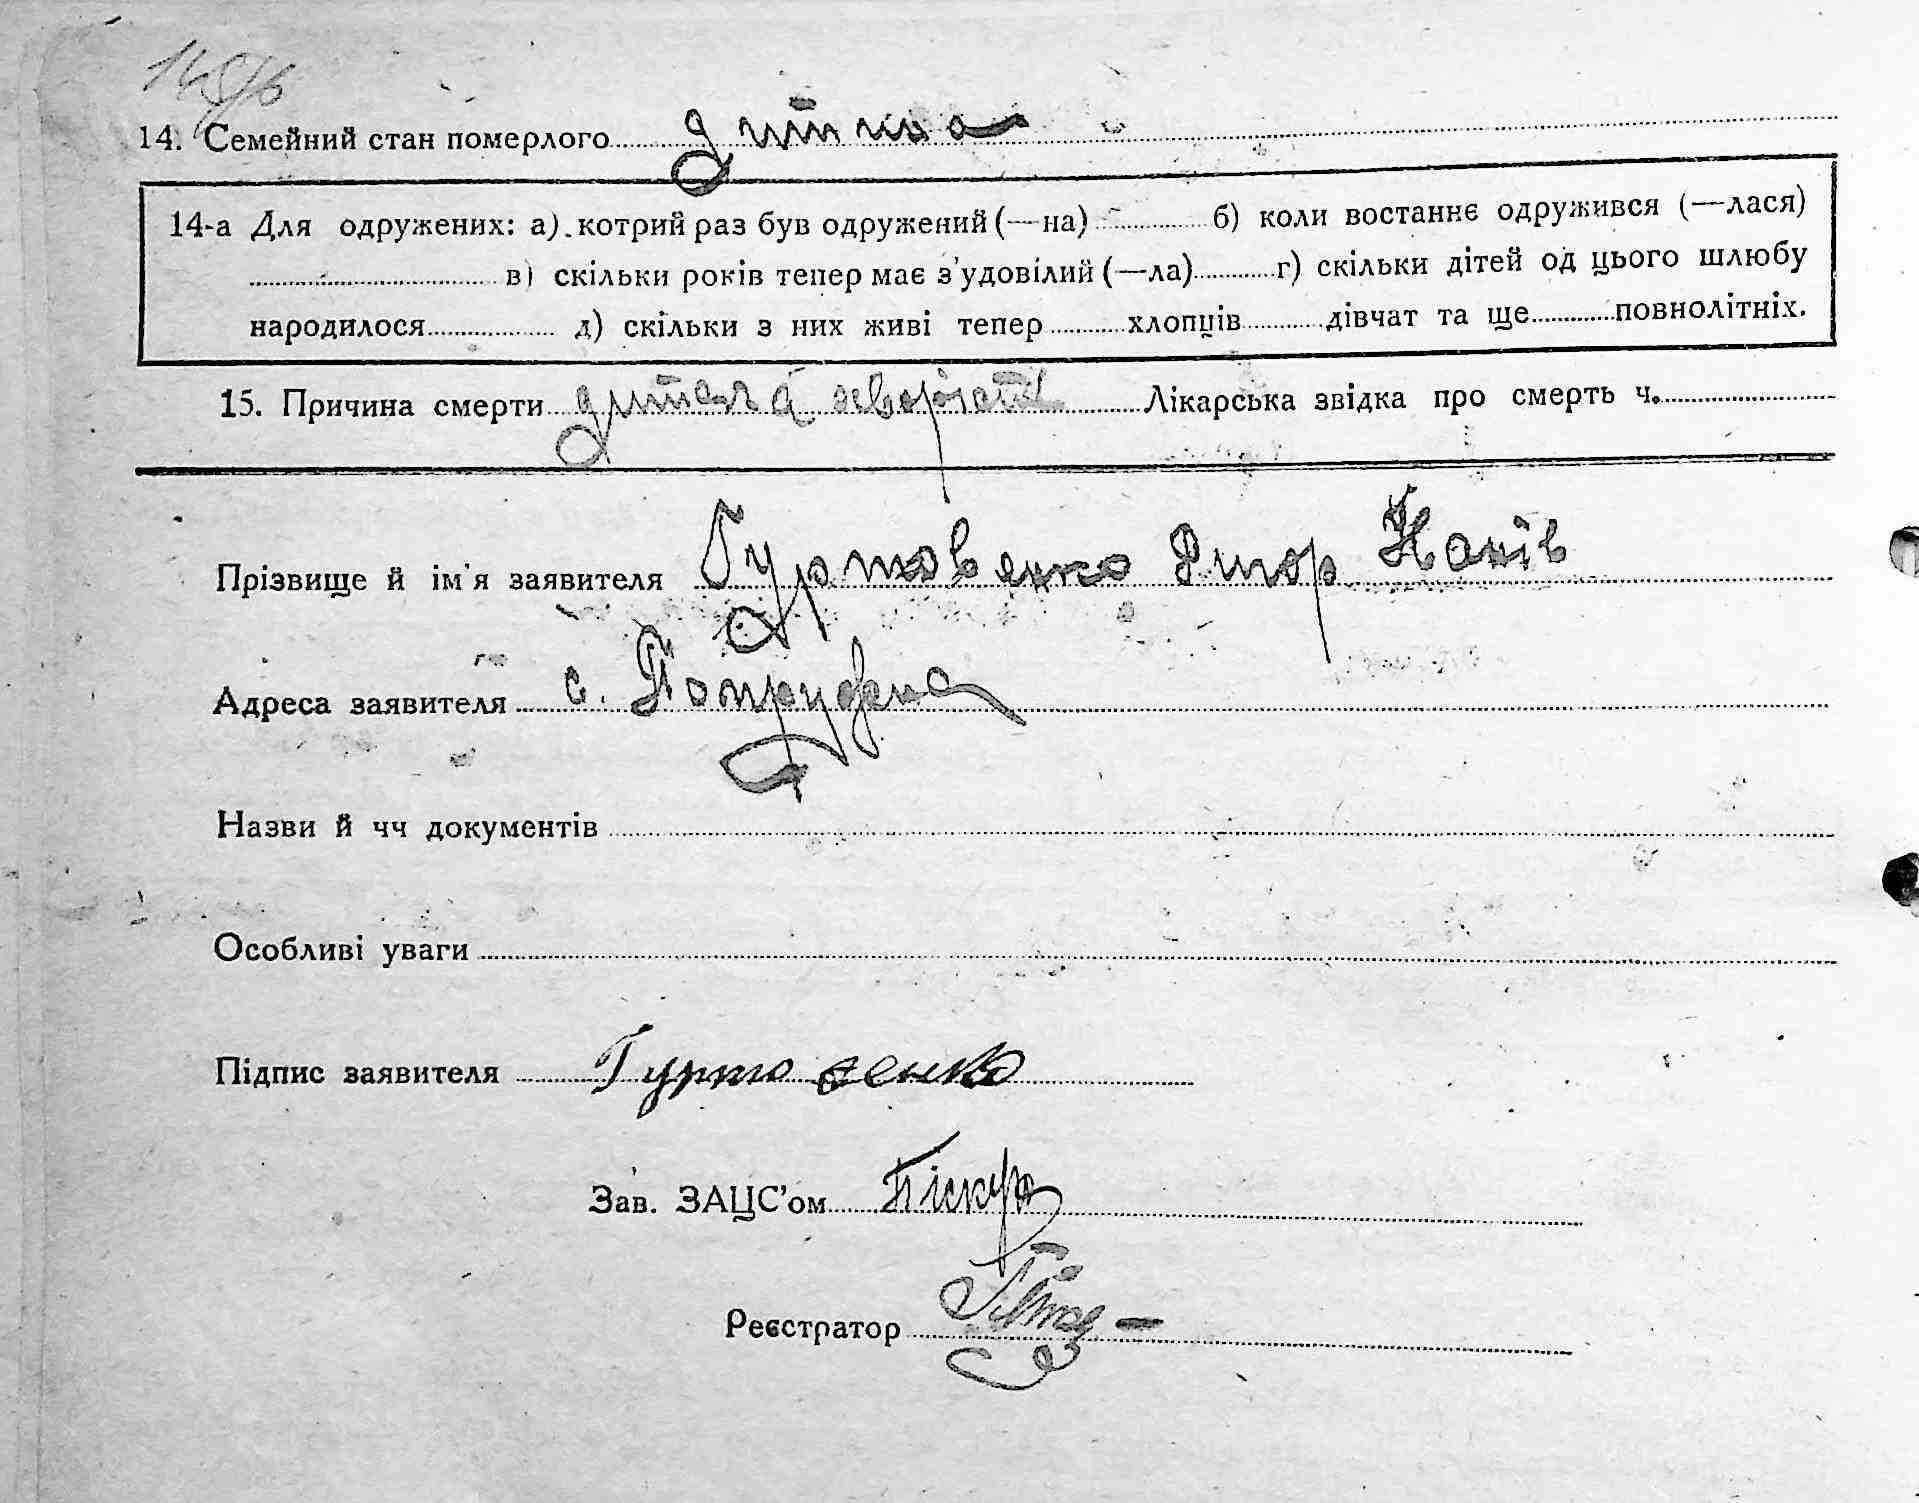 14. Семейний стан померлого дитина
14-а Для одружених: а) котрий раз був одружений (—на) б) коли востаннє одружився (—лася)
в) скільки років тепер має з'удовілий (—ла) г) скільки дітей од цього шлюбу
народилося д) скільки з них живі тепер хлопців дівчат та ще повнолітніх.
15. Причина смерти дитяча хворість Лікарська звідка про смерть ч.
Прізвище й ім'я заявителя Гуртовенко
Адреса заявителя с. Попружна
Назви й чч документів
Особливі уваги
Підпис заявителя Гуртовенко
Зав. ЗАЦС'ом Піскур
Реєстратор